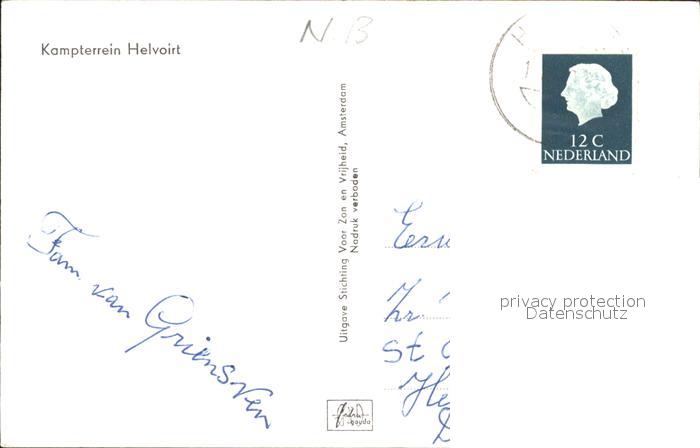 N.B
Kampterrein Helvoirt
12 C
NEDERLAND
Uitgave Stichting Voor Zon en Vrijheid, Amsterdam
Nadruk verboden
Fam. van Griensven
privacy protection
Datenschutz
St